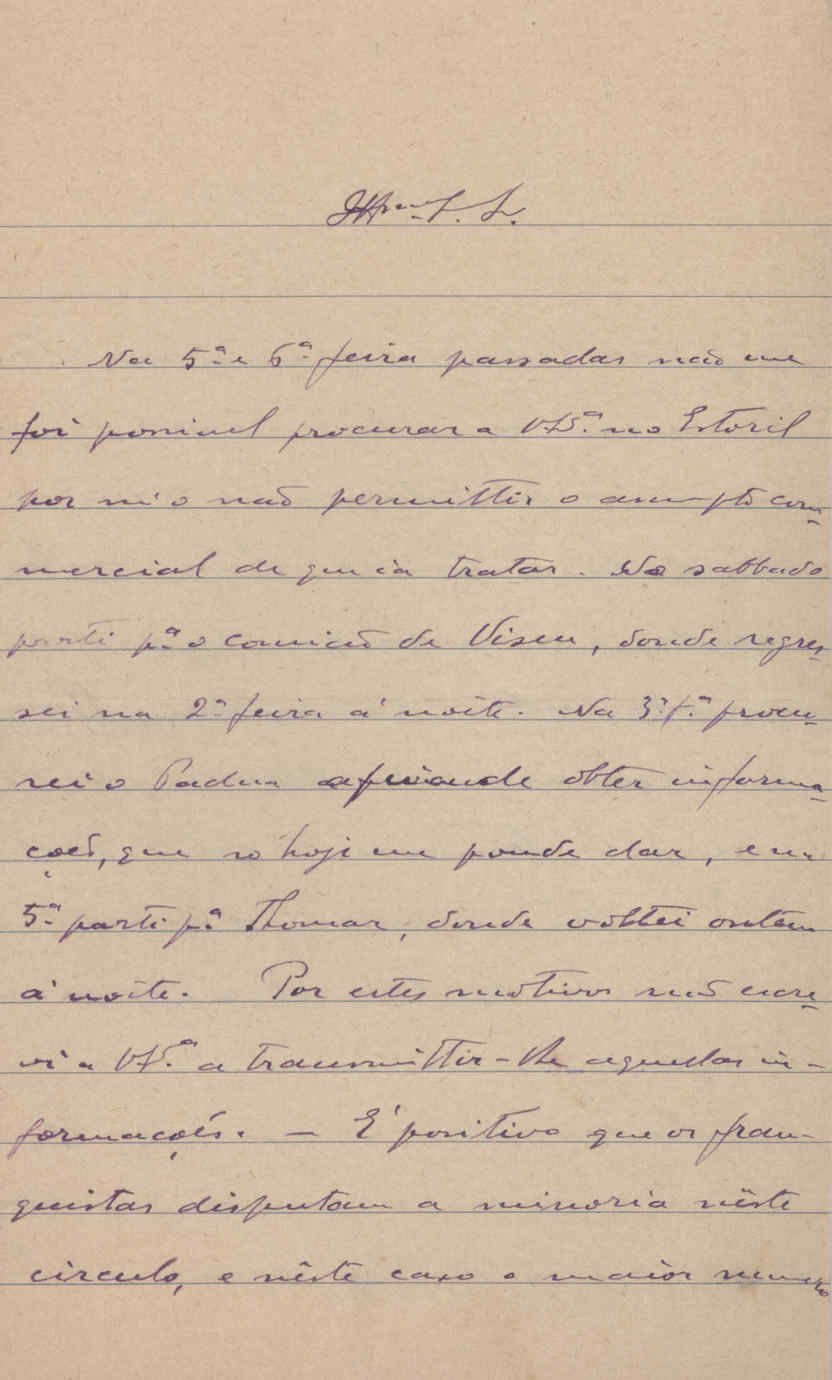 Illmo. S. S.
Na 5ª e 6ª feira passadas não me
foi possivel procurar a V. Sª. no Estoril
por m'o não permittir o assumpto com-
mercial de que ia tratar. No sabbado
parti pª o comicio de Viseu, donde regres-
sei na 2ª feira á noite. Na 3ª f.ª procu-
rei o Padua afim de obter informa-
ções, que só hoje me poude dar, e na
5ª parti pª Thomar, donde voltei ontem
á noite. Por estes motivos não escre-
vi a V. Sª. a transmittir-lhe aquellas in-
formações. — É positivo que os fran-
quistas disputam a minoria nêste
circulo, e nêste caso o maior numero